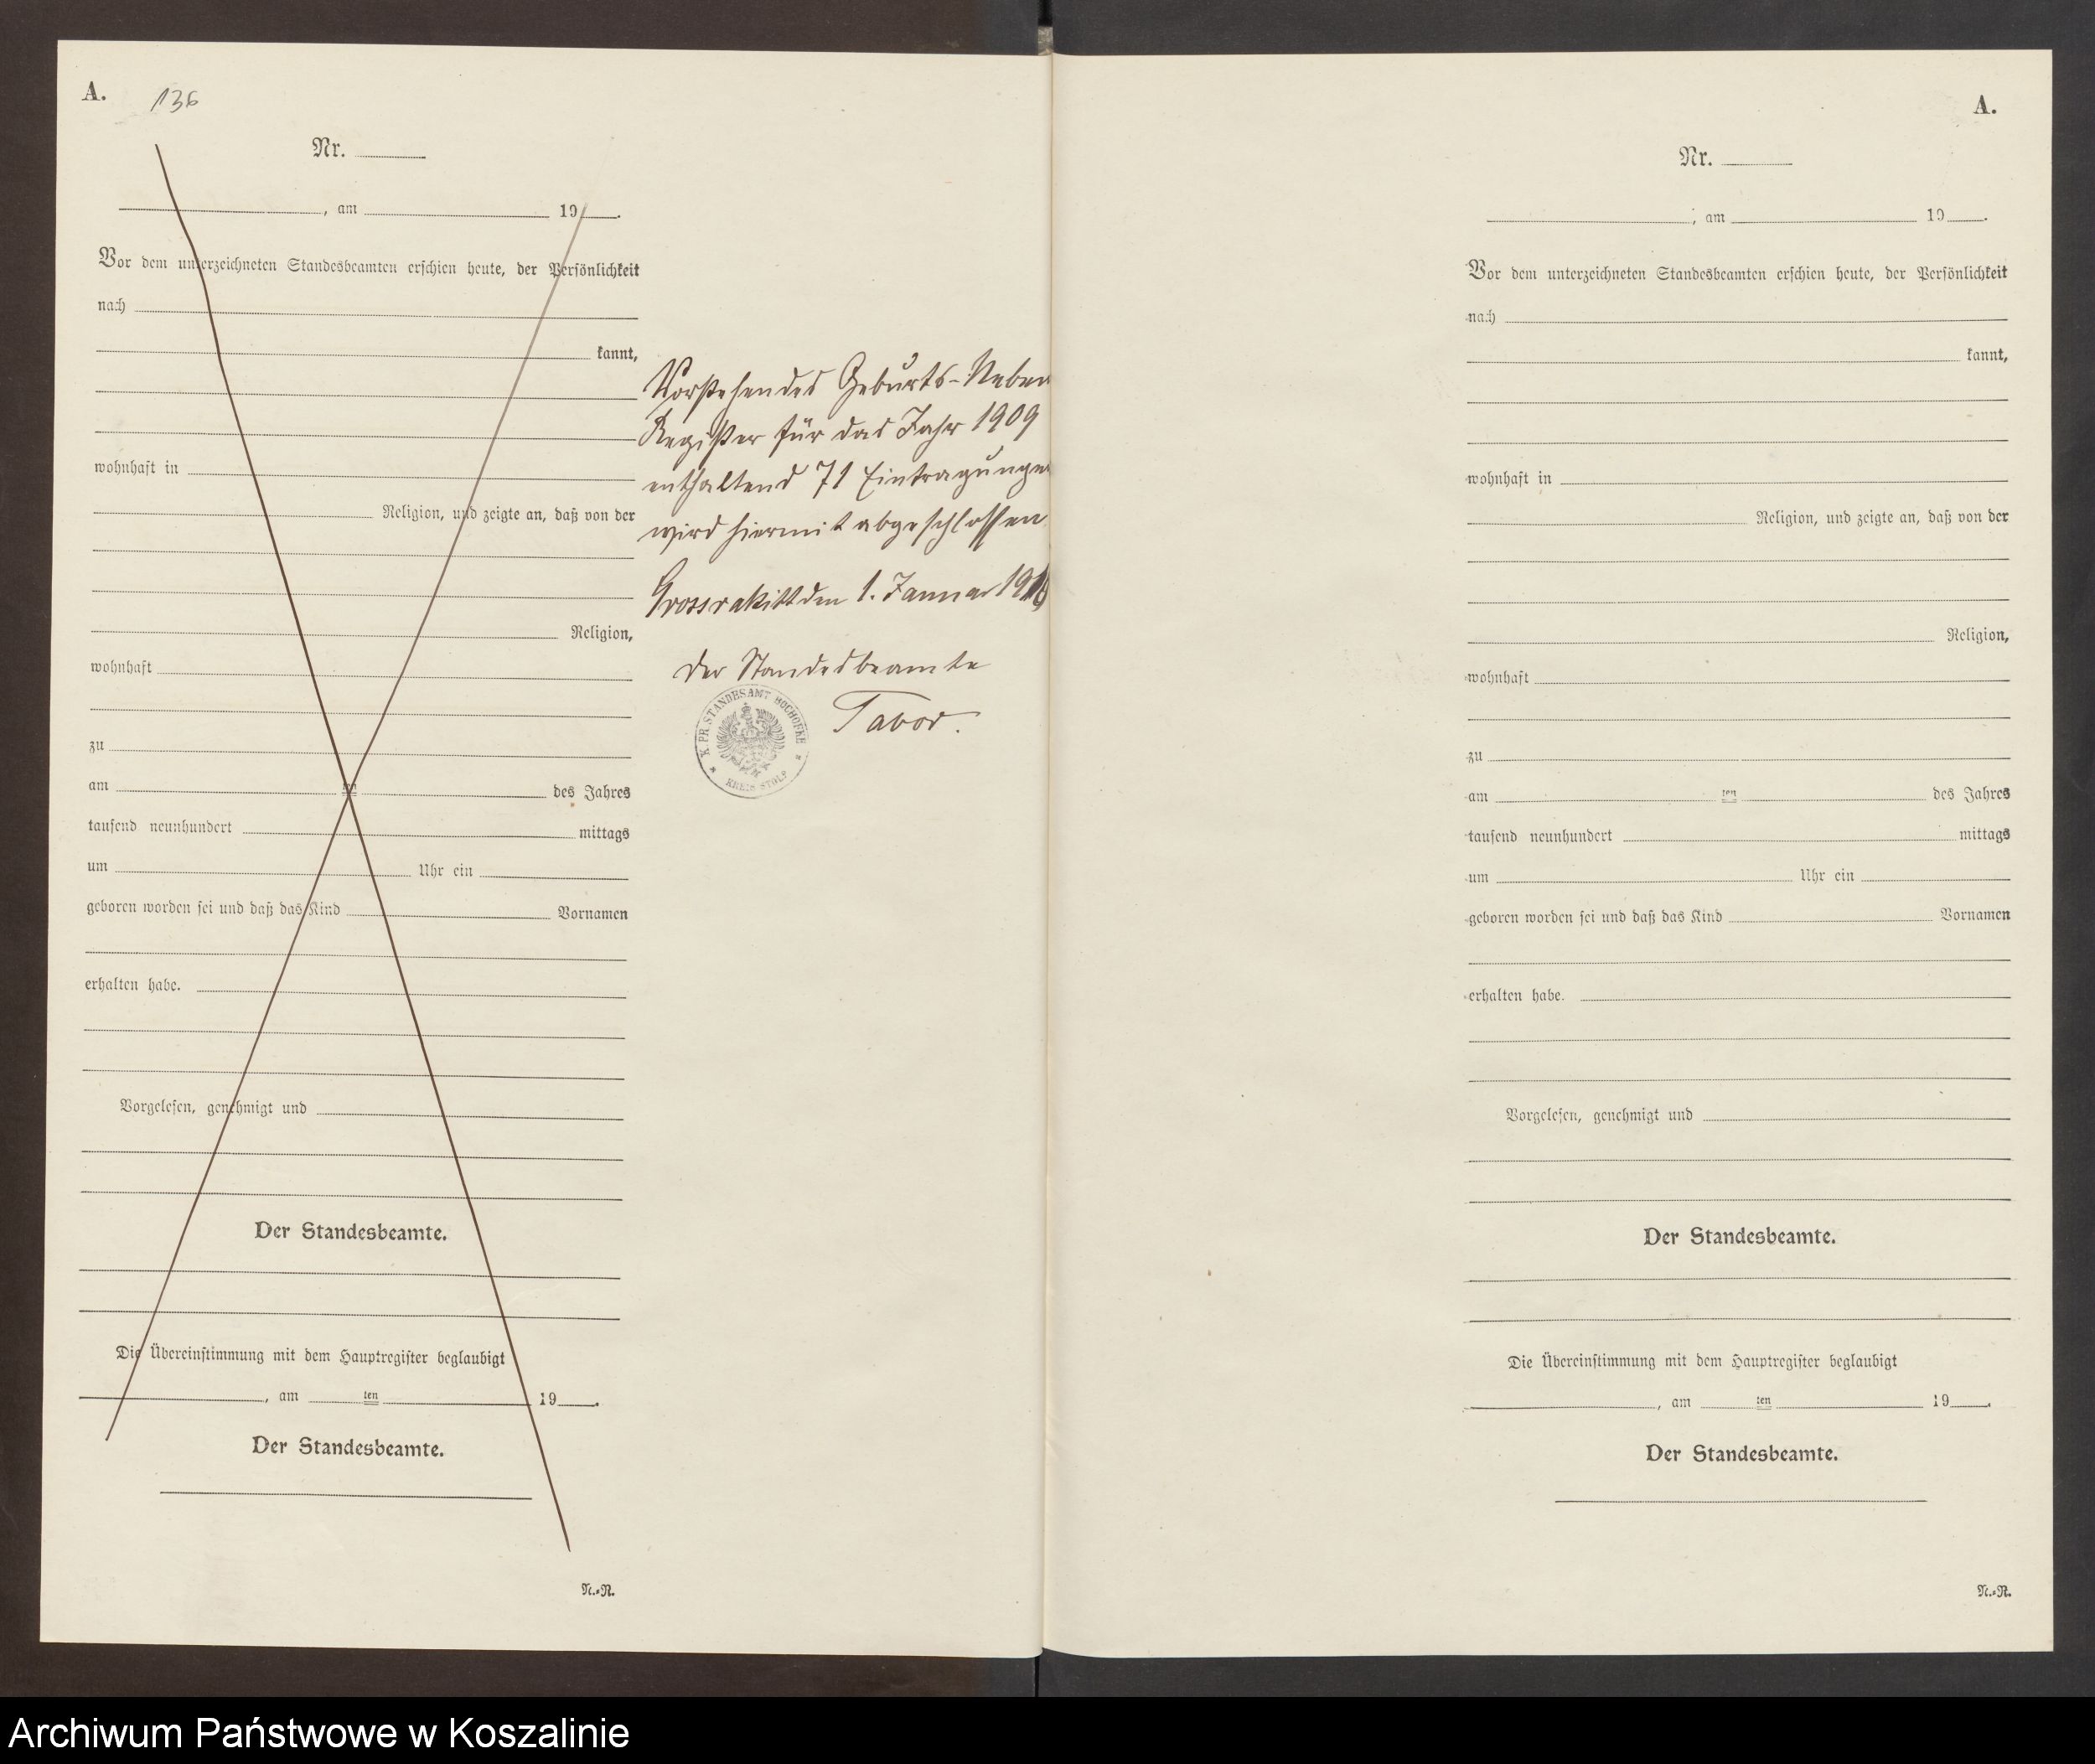 A.
136
Nr.
, am 19 .
Vor dem unterzeichneten Standesbeamten erschien heute, der Persönlichkeit
nach
kannt,
wohnhaft in
Religion, und zeigte an, daß von der
Religion,
wohnhaft
zu
am ten des Jahres
tausend neunhundert mittags
um Uhr ein
geboren worden sei und daß das Kind Vornamen
erhalten habe.
Vorgelesen, genehmigt und
Der Standesbeamte.
Die Übereinstimmung mit dem Hauptregister beglaubigt
, am ten 19 .
Der Standesbeamte.
N.=R.
Vorstehendes Geburts-Neben
Register für das Jahr 1909
enthaltend 71 Eintragungen
wird hiermit abgeschlossen
Grossrakitt den 1. Januar 1910
Der Standesbeamte
Tabor.
K. PR. STANDESAMT HOCHOFKE
KREIS STOLP
A.
Nr.
, am 19 .
Vor dem unterzeichneten Standesbeamten erschien heute, der Persönlichkeit
nach
kannt,
wohnhaft in
Religion, und zeigte an, daß von der
Religion,
wohnhaft
zu
am ten des Jahres
tausend neunhundert mittags
um Uhr ein
geboren worden sei und daß das Kind Vornamen
erhalten habe.
Vorgelesen, genehmigt und
Der Standesbeamte.
Die Übereinstimmung mit dem Hauptregister beglaubigt
, am ten 19 .
Der Standesbeamte.
N.=R.
Archiwum Państwowe w Koszalinie